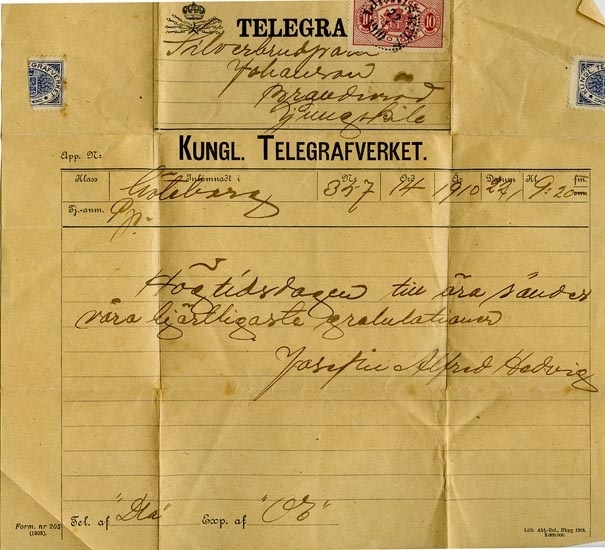 TELEGRA
Silverbrudparet
Johanson
Ljungskile
KUNGL. TELEGRAFVERKET.
App. Nr
Klass Inlämnadt i Nr Ord År Datum Kl. fm. em.
Göteborg 357 14 1910 22/1 9:20
Tj.-anm.
Högtidsdagen till ära sändes
våra hjärtligaste gratulationer
Josefin Alfred Hedvig
Tel. af Exp. af
Form. nr 205
(1908).
Lith. Akt.-Bol., Nkpg 1908.